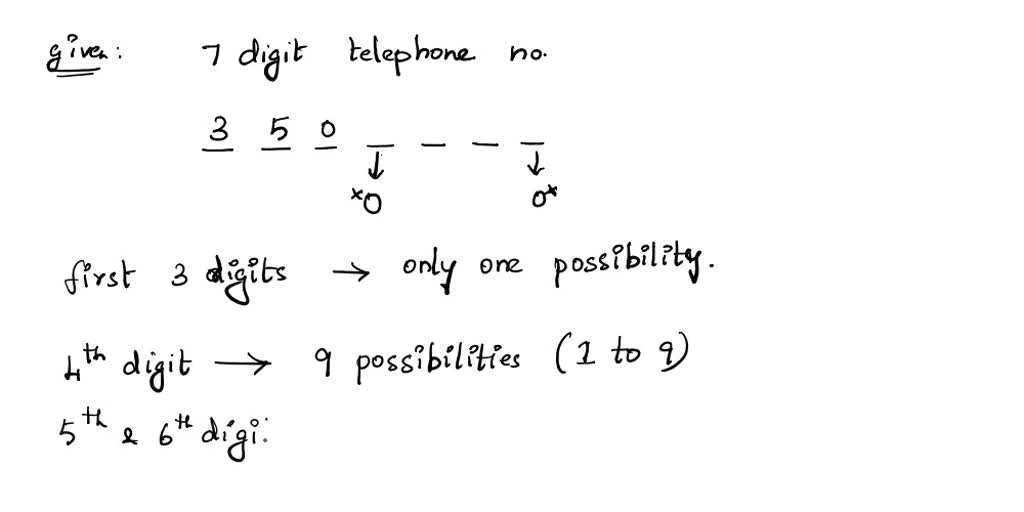 given: 7 digit telephone no.
3 5 0 _ _ _ _
↓ ↓
*0 0*
first 3 digits → only one possibility.
4th digit → 9 possibilities (1 to 9)
5th & 6th digi: